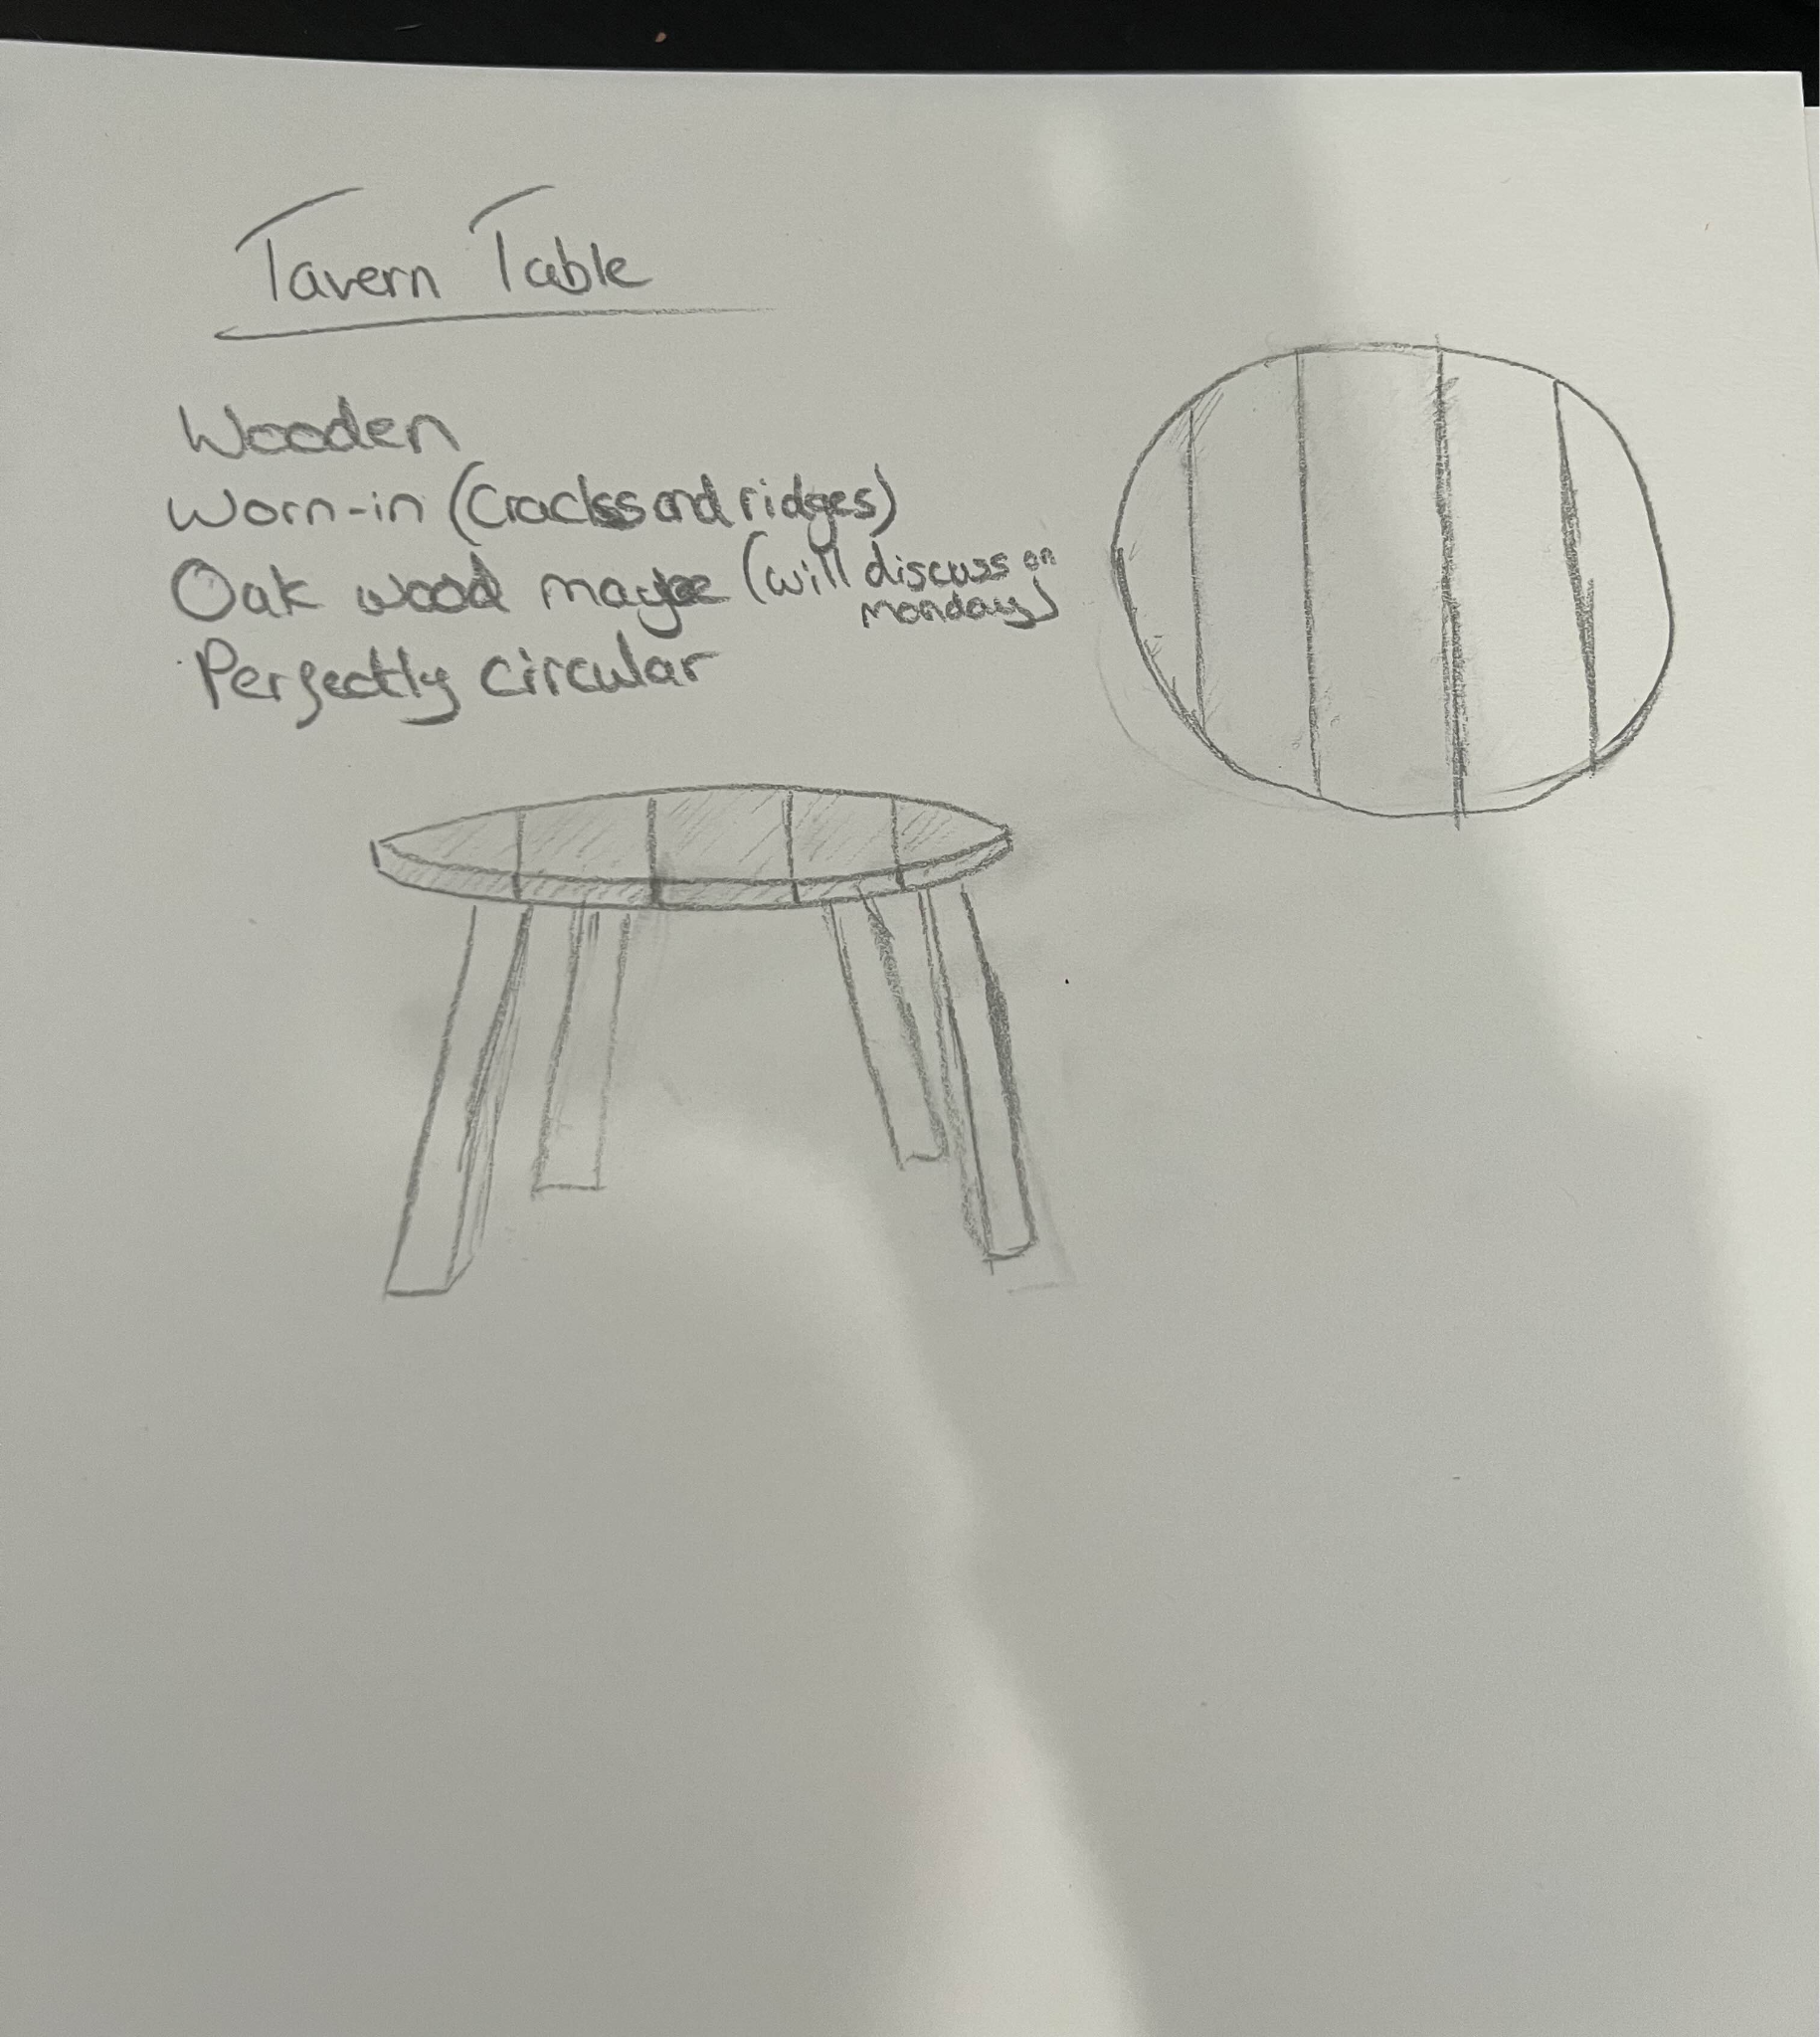 Tavern Table
Wooden
Worn-in (Cracks and ridges)
Oak wood maybe (will discuss on
monday)
Perfectly circular